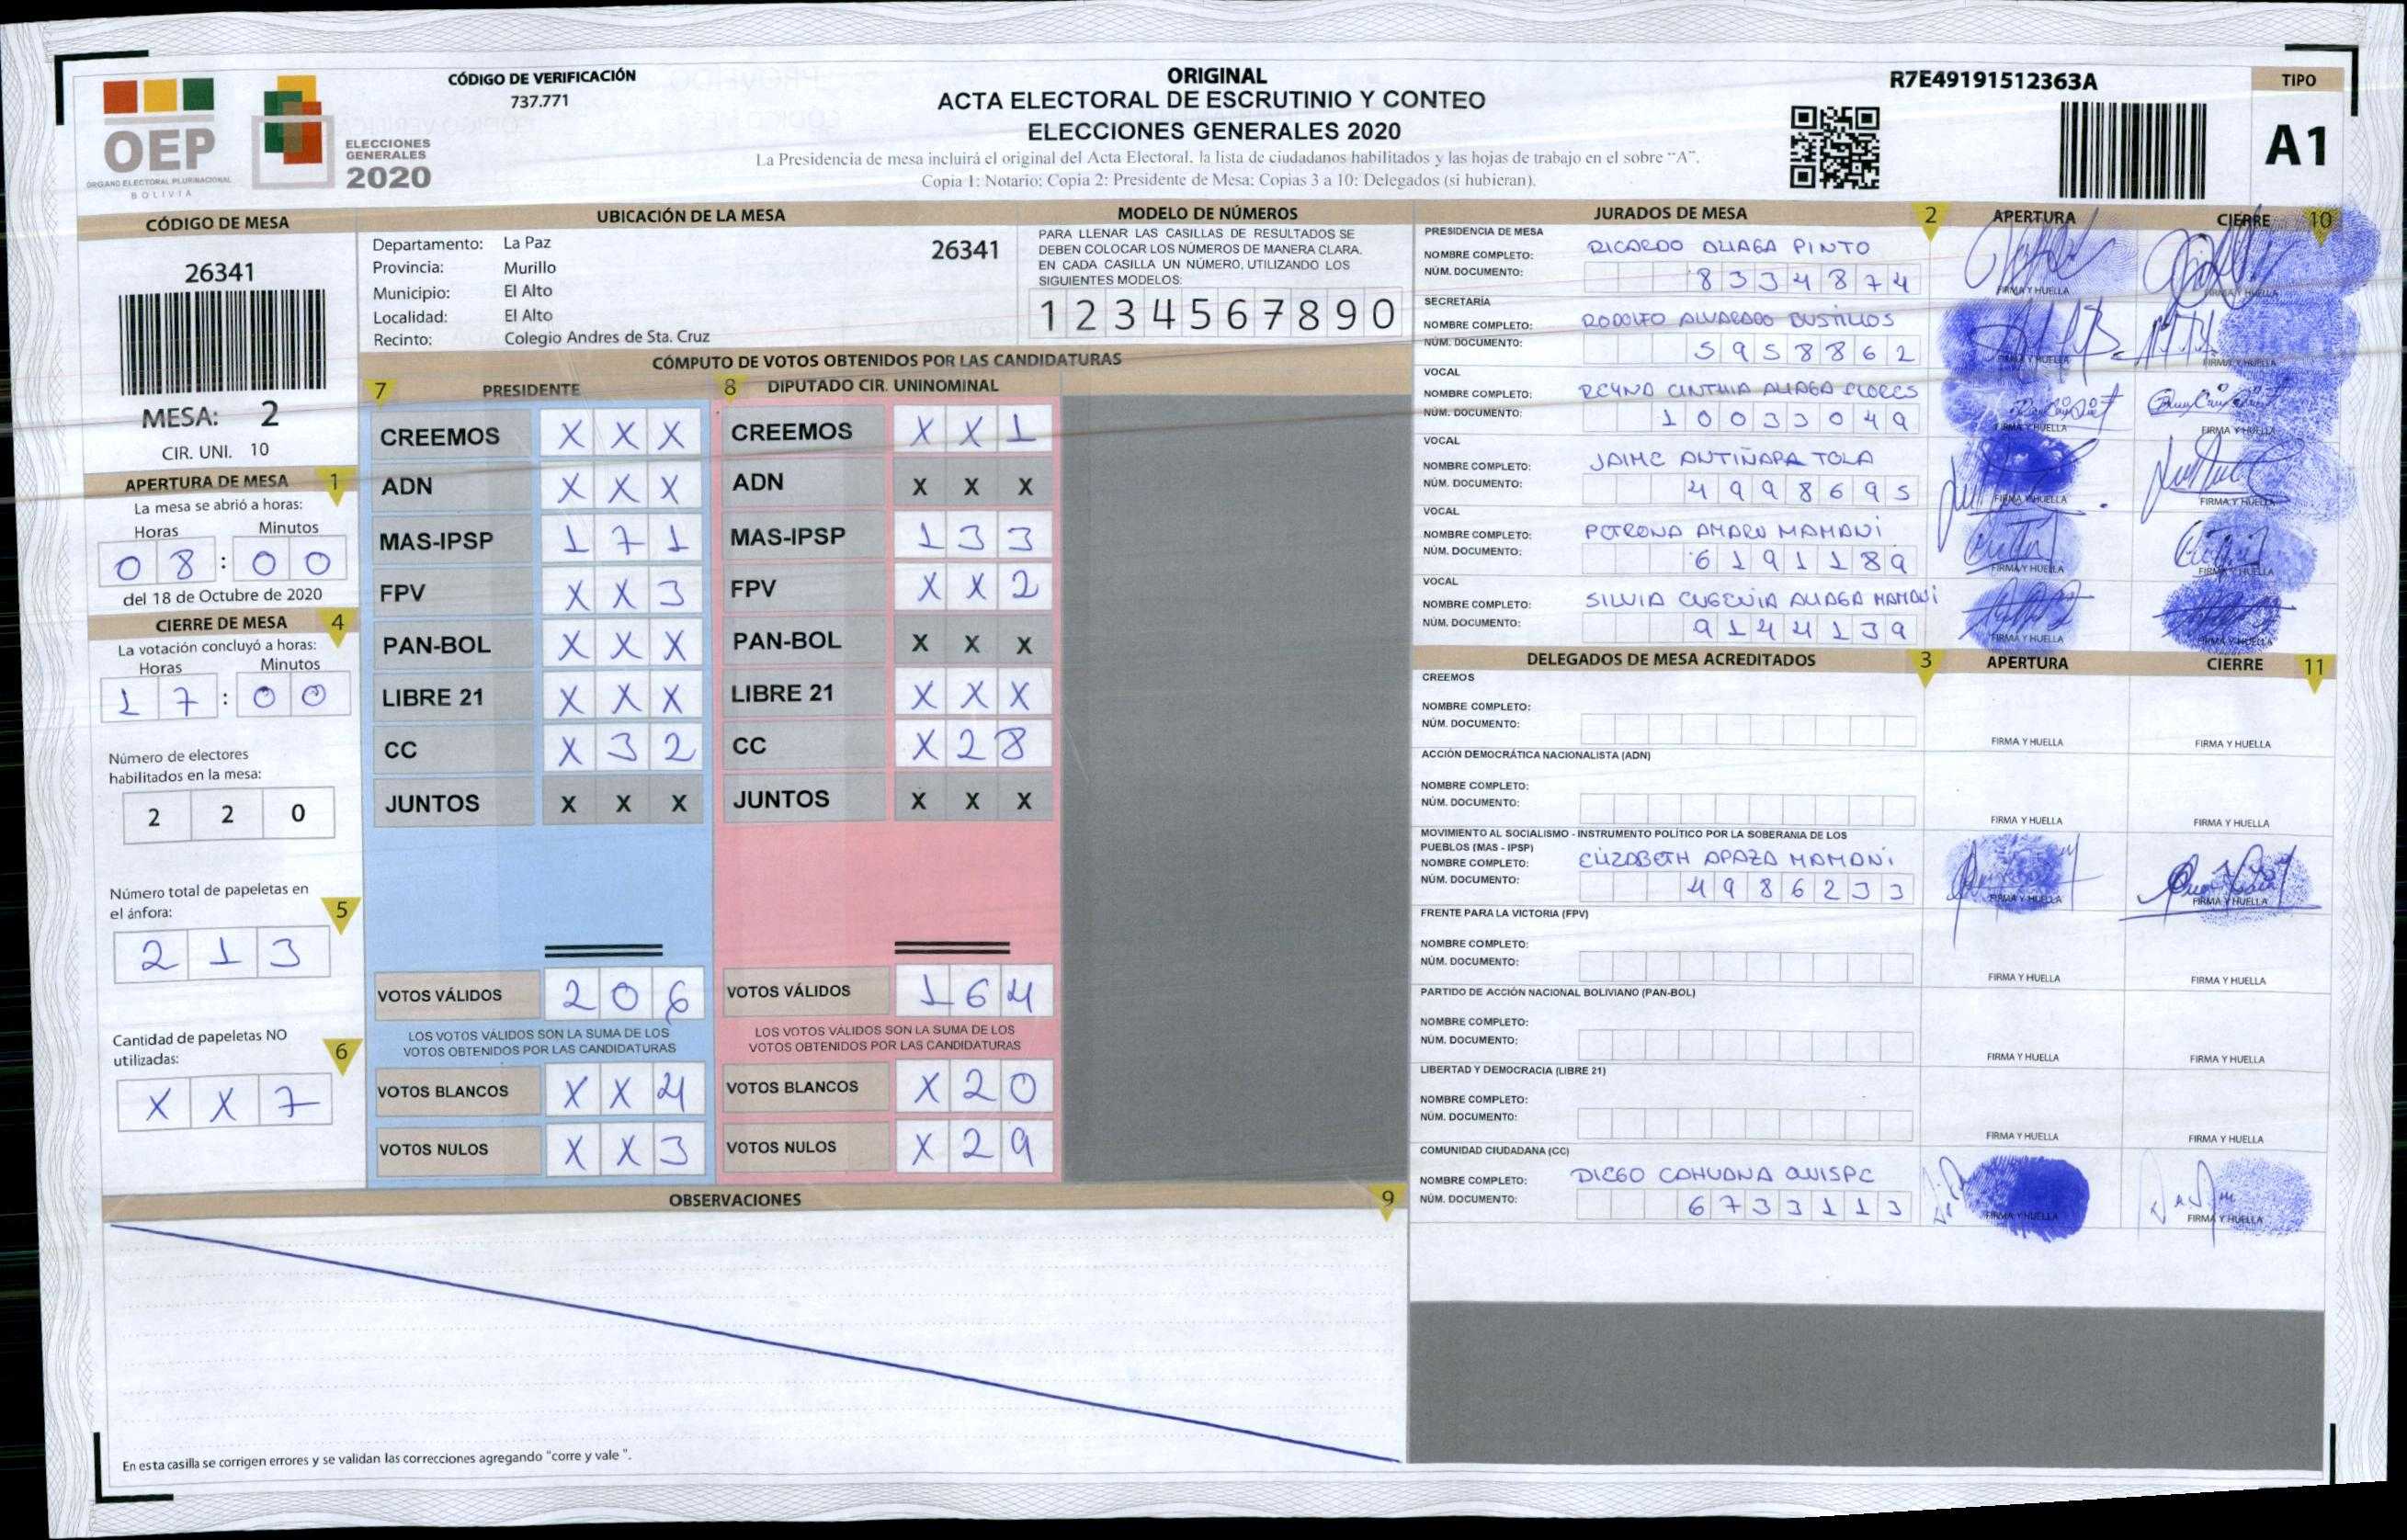 CÓDIGO DE VERIFICACIÓN
737.771
OEP
ÓRGANO ELECTORAL PLURINACIONAL
BOLIVIA
ELECCIONES
GENERALES
2020
ORIGINAL
ACTA ELECTORAL DE ESCRUTINIO Y CONTEO
ELECCIONES GENERALES 2020
La Presidencia de mesa incluirá el original del Acta Electoral, la lista de ciudadanos habilitados y las hojas de trabajo en el sobre "A".
Copia 1: Notario; Copia 2: Presidente de Mesa; Copias 3 a 10: Delegados (si hubieran).
R7E49191512363A
TIPO
A1
CÓDIGO DE MESA
26341
MESA: 2
CIR. UNI. 10
APERTURA DE MESA 1
La mesa se abrió a horas:
Horas Minutos
08:00
del 18 de Octubre de 2020
CIERRE DE MESA 4
La votación concluyó a horas:
Horas Minutos
17:00
Número de electores
habilitados en la mesa:
2 2 0
Número total de papeletas en
el ánfora: 5
2 1 3
Cantidad de papeletas NO
utilizadas: 6
X X 7
UBICACIÓN DE LA MESA
Departamento: La Paz 26341
Provincia: Murillo
Municipio: El Alto
Localidad: El Alto
Recinto: Colegio Andres de Sta. Cruz
MODELO DE NÚMEROS
PARA LLENAR LAS CASILLAS DE RESULTADOS SE
DEBEN COLOCAR LOS NÚMEROS DE MANERA CLARA.
EN CADA CASILLA UN NÚMERO, UTILIZANDO LOS
SIGUIENTES MODELOS:
1 2 3 4 5 6 7 8 9 0
CÓMPUTO DE VOTOS OBTENIDOS POR LAS CANDIDATURAS
7 PRESIDENTE
CREEMOS X X X
ADN X X X
MAS-IPSP 1 7 1
FPV X X 3
PAN-BOL X X X
LIBRE 21 X X X
CC X 3 2
JUNTOS X X X
VOTOS VÁLIDOS 2 0 6
LOS VOTOS VÁLIDOS SON LA SUMA DE LOS
VOTOS OBTENIDOS POR LAS CANDIDATURAS
VOTOS BLANCOS X X 4
VOTOS NULOS X X 3
8 DIPUTADO CIR. UNINOMINAL
CREEMOS X X 1
ADN X X X
MAS-IPSP 1 3 3
FPV X X 2
PAN-BOL X X X
LIBRE 21 X X X
CC X 2 8
JUNTOS X X X
VOTOS VÁLIDOS 1 6 4
LOS VOTOS VÁLIDOS SON LA SUMA DE LOS
VOTOS OBTENIDOS POR LAS CANDIDATURAS
VOTOS BLANCOS X 2 0
VOTOS NULOS X 2 9
OBSERVACIONES 9
En esta casilla se corrigen errores y se validan las correcciones agregando "corre y vale ".
JURADOS DE MESA 2 APERTURA CIERRE 10
PRESIDENCIA DE MESA
NOMBRE COMPLETO: RICARDO ALIAGA PINTO
NÚM. DOCUMENTO: 8334874
FIRMA Y HUELLA FIRMA Y HUELLA
SECRETARÍA
NOMBRE COMPLETO: RODOLFO ALVARADO BUSTILLOS
NÚM. DOCUMENTO: 5958862
FIRMA Y HUELLA FIRMA Y HUELLA
VOCAL
NOMBRE COMPLETO: REYNA CINTHIA ALIAGA FLORES
NÚM. DOCUMENTO: 10033049
FIRMA Y HUELLA FIRMA Y HUELLA
VOCAL
NOMBRE COMPLETO: JAIME ANTIÑAPA TOLA
NÚM. DOCUMENTO: 4998695
FIRMA Y HUELLA FIRMA Y HUELLA
VOCAL
NOMBRE COMPLETO: PETRONA AMARU MAMANI
NÚM. DOCUMENTO: 6191189
FIRMA Y HUELLA FIRMA Y HUELLA
VOCAL
NOMBRE COMPLETO: SILVIA EUGENIA ALIAGA MAMANI
NÚM. DOCUMENTO: 9144139
FIRMA Y HUELLA FIRMA Y HUELLA
DELEGADOS DE MESA ACREDITADOS 3 APERTURA CIERRE 11
CREEMOS
NOMBRE COMPLETO:
NÚM. DOCUMENTO:
FIRMA Y HUELLA FIRMA Y HUELLA
ACCIÓN DEMOCRÁTICA NACIONALISTA (ADN)
NOMBRE COMPLETO:
NÚM. DOCUMENTO:
FIRMA Y HUELLA FIRMA Y HUELLA
MOVIMIENTO AL SOCIALISMO - INSTRUMENTO POLÍTICO POR LA SOBERANIA DE LOS
PUEBLOS (MAS - IPSP)
NOMBRE COMPLETO: ELIZABETH APAZA MAMANI
NÚM. DOCUMENTO: 4986233
FIRMA Y HUELLA FIRMA Y HUELLA
FRENTE PARA LA VICTORIA (FPV)
NOMBRE COMPLETO:
NÚM. DOCUMENTO:
FIRMA Y HUELLA FIRMA Y HUELLA
PARTIDO DE ACCIÓN NACIONAL BOLIVIANO (PAN-BOL)
NOMBRE COMPLETO:
NÚM. DOCUMENTO:
FIRMA Y HUELLA FIRMA Y HUELLA
LIBERTAD Y DEMOCRACIA (LIBRE 21)
NOMBRE COMPLETO:
NÚM. DOCUMENTO:
FIRMA Y HUELLA FIRMA Y HUELLA
COMUNIDAD CIUDADANA (CC)
NOMBRE COMPLETO: DIEGO CAHUANA QUISPE
NÚM. DOCUMENTO: 6733113
FIRMA Y HUELLA FIRMA Y HUELLA